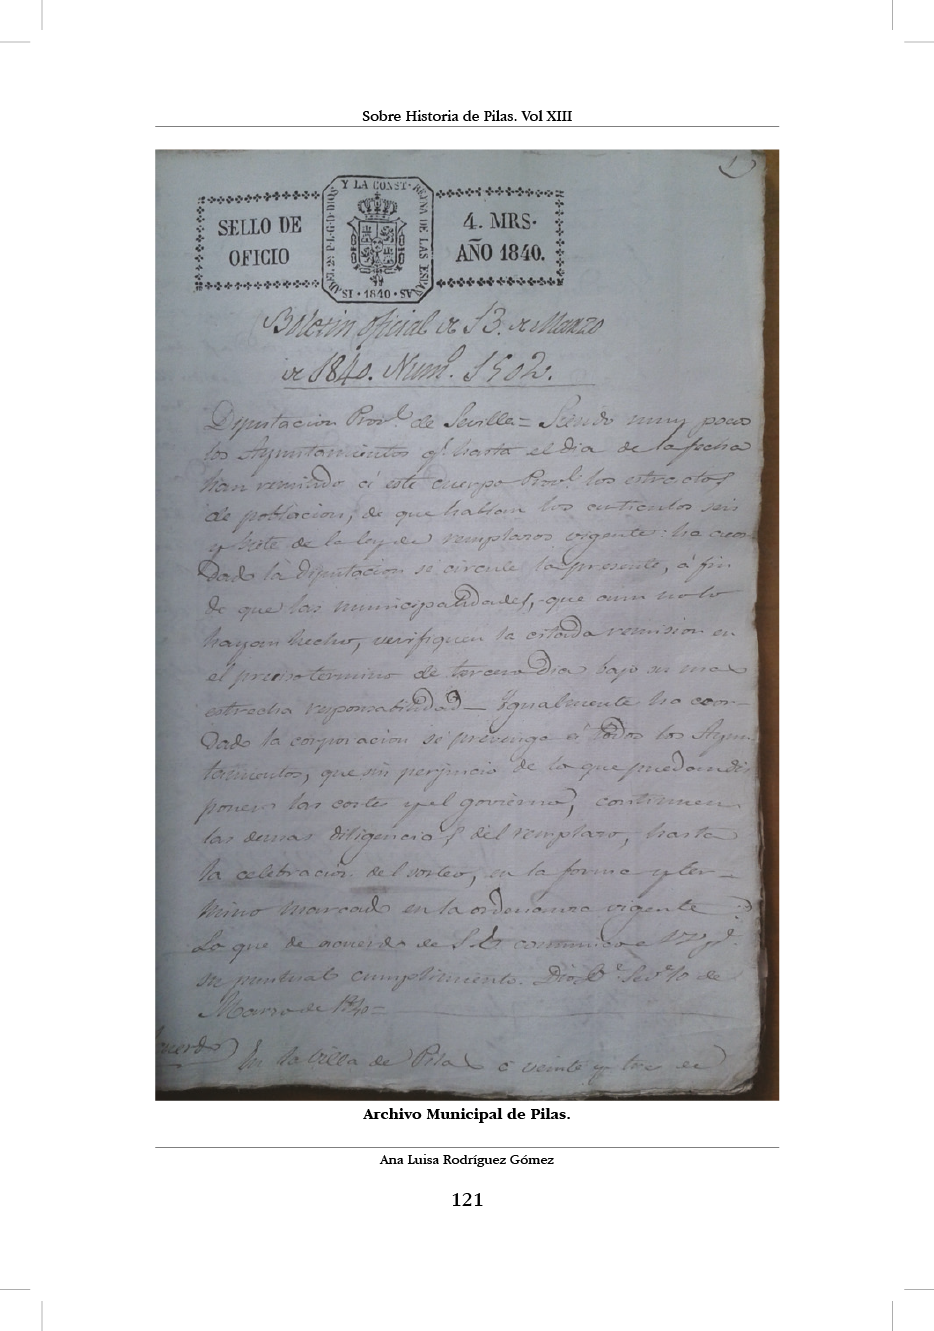 Sobre Historia de Pilas. Vol XIII
1
SELLO DE
OFICIO
ISABEL 2ª P. L. G. D. DIOS Y LA CONST. REINA DE LAS ESPAÑAS · 1840 ·
4. MRS.
AÑO 1840.
Boletin oficial de 13. de Marzo
de 1840. Numº. 1502.
Diputacion Provl. de Sevilla = Siendo muy pocos
los Ayuntamientos qe. hasta el dia de la fecha
han remitido á este cuerpo Provl. los estractos
de poblacion, de que hablan los articulos seis
y siete de la ley de remplazos vigente: ha acor
dado la diputacion se circule la presente, á fin
de que las municipalidades, que aun no lo
hayan hecho, verifiquen la citada remision en
el preciso termino de tercero dia bajo su mas
estrecha responsabilidad — Ygualmente ha acor-
dado la corporacion se prevenga á todos los Ayun
tamientos, que sin perjuicio de lo que puedan dis
poner las cortes y el govierno, continuen
las demas diligencias del remplazo, hasta
la celebracion del sorteo, en la forma y ter-
mino marcado en la ordenanza vigente
Lo que de acuerdo de S. E. comunico a
su puntual cumplimiento. Sevª. 10 de
Marzo de 1840 =
En la Villa de Pilas á veinte y tres de
Archivo Municipal de Pilas.
Ana Luisa Rodríguez Gómez
121